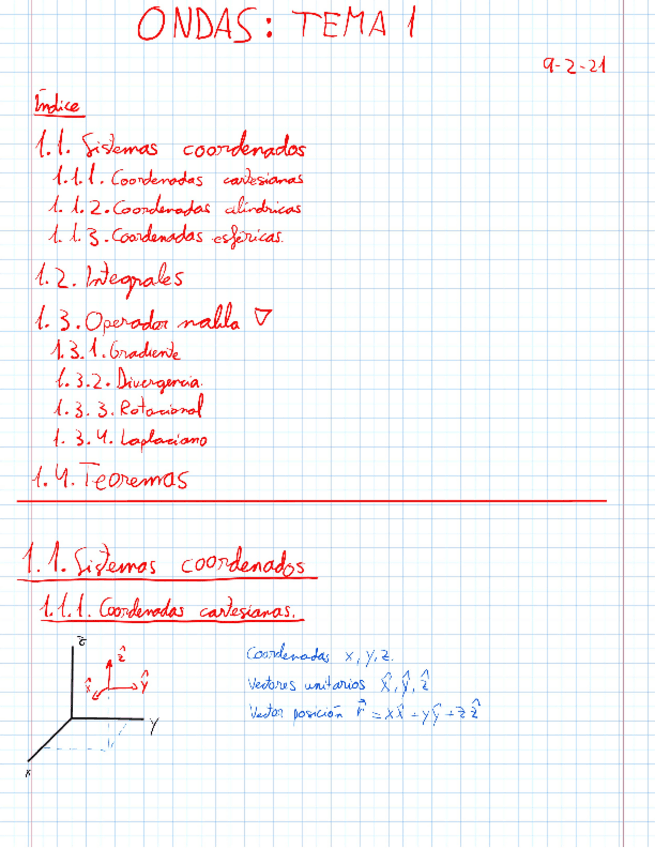 ONDAS: TEMA 1
9-2-21
Índice
1.1. Sistemas coordenados
1.1.1. Coordenadas cartesianas
1.1.2. Coordenadas cilíndricas
1.1.3. Coordenadas esféricas.
1.2. Integrales
1.3. Operador nabla ∇
1.3.1. Gradiente
1.3.2. Divergencia.
1.3.3. Rotacional
1.3.4. Laplaciano
1.4. Teoremas
1.1. Sistemas coordenados
1.1.1. Coordenadas cartesianas.
z
ẑ
x̂ ŷ
y
x
Coordenadas x, y, z.
Vectores unitarios x̂, ŷ, ẑ
Vector posición r⃗ = xx̂ + yŷ + zẑ